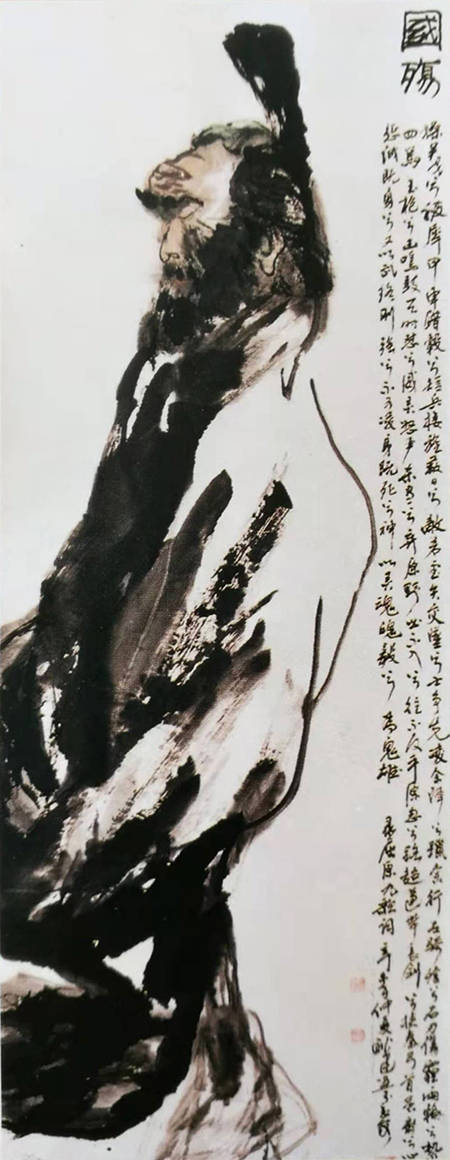 國殤
操吳戈兮被犀甲車錯轂兮短兵接旌蔽日兮敵若雲矢交墜兮士爭先凌余陣兮躐余行左驂殪兮右刃傷霾兩輪兮縶
四馬玉枹兮擊鳴鼓天時懟兮威靈怒嚴殺盡兮棄原野出不入兮往不反平原忽兮路超遠帶長劍兮挾秦弓首身離兮心
懲誠既勇兮又以武終剛強兮不可凌身既死兮神以靈魂魄毅兮為鬼雄 屈原九歌詞